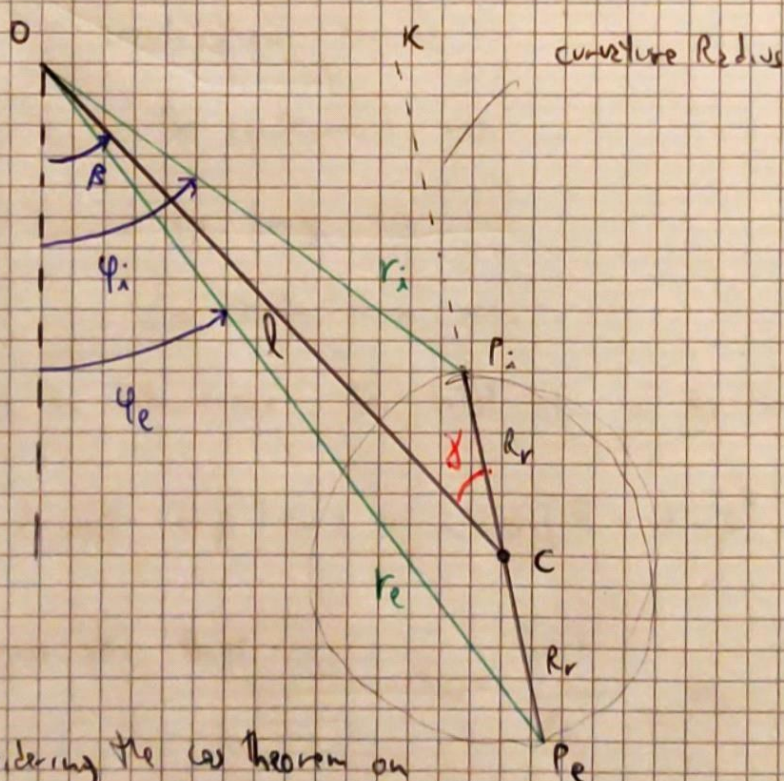 O
K
curvature Radius
β
φi
ri
l
Pi
φe
γ
Rr
C
re
Rr
idering the cos theorem on
Pe